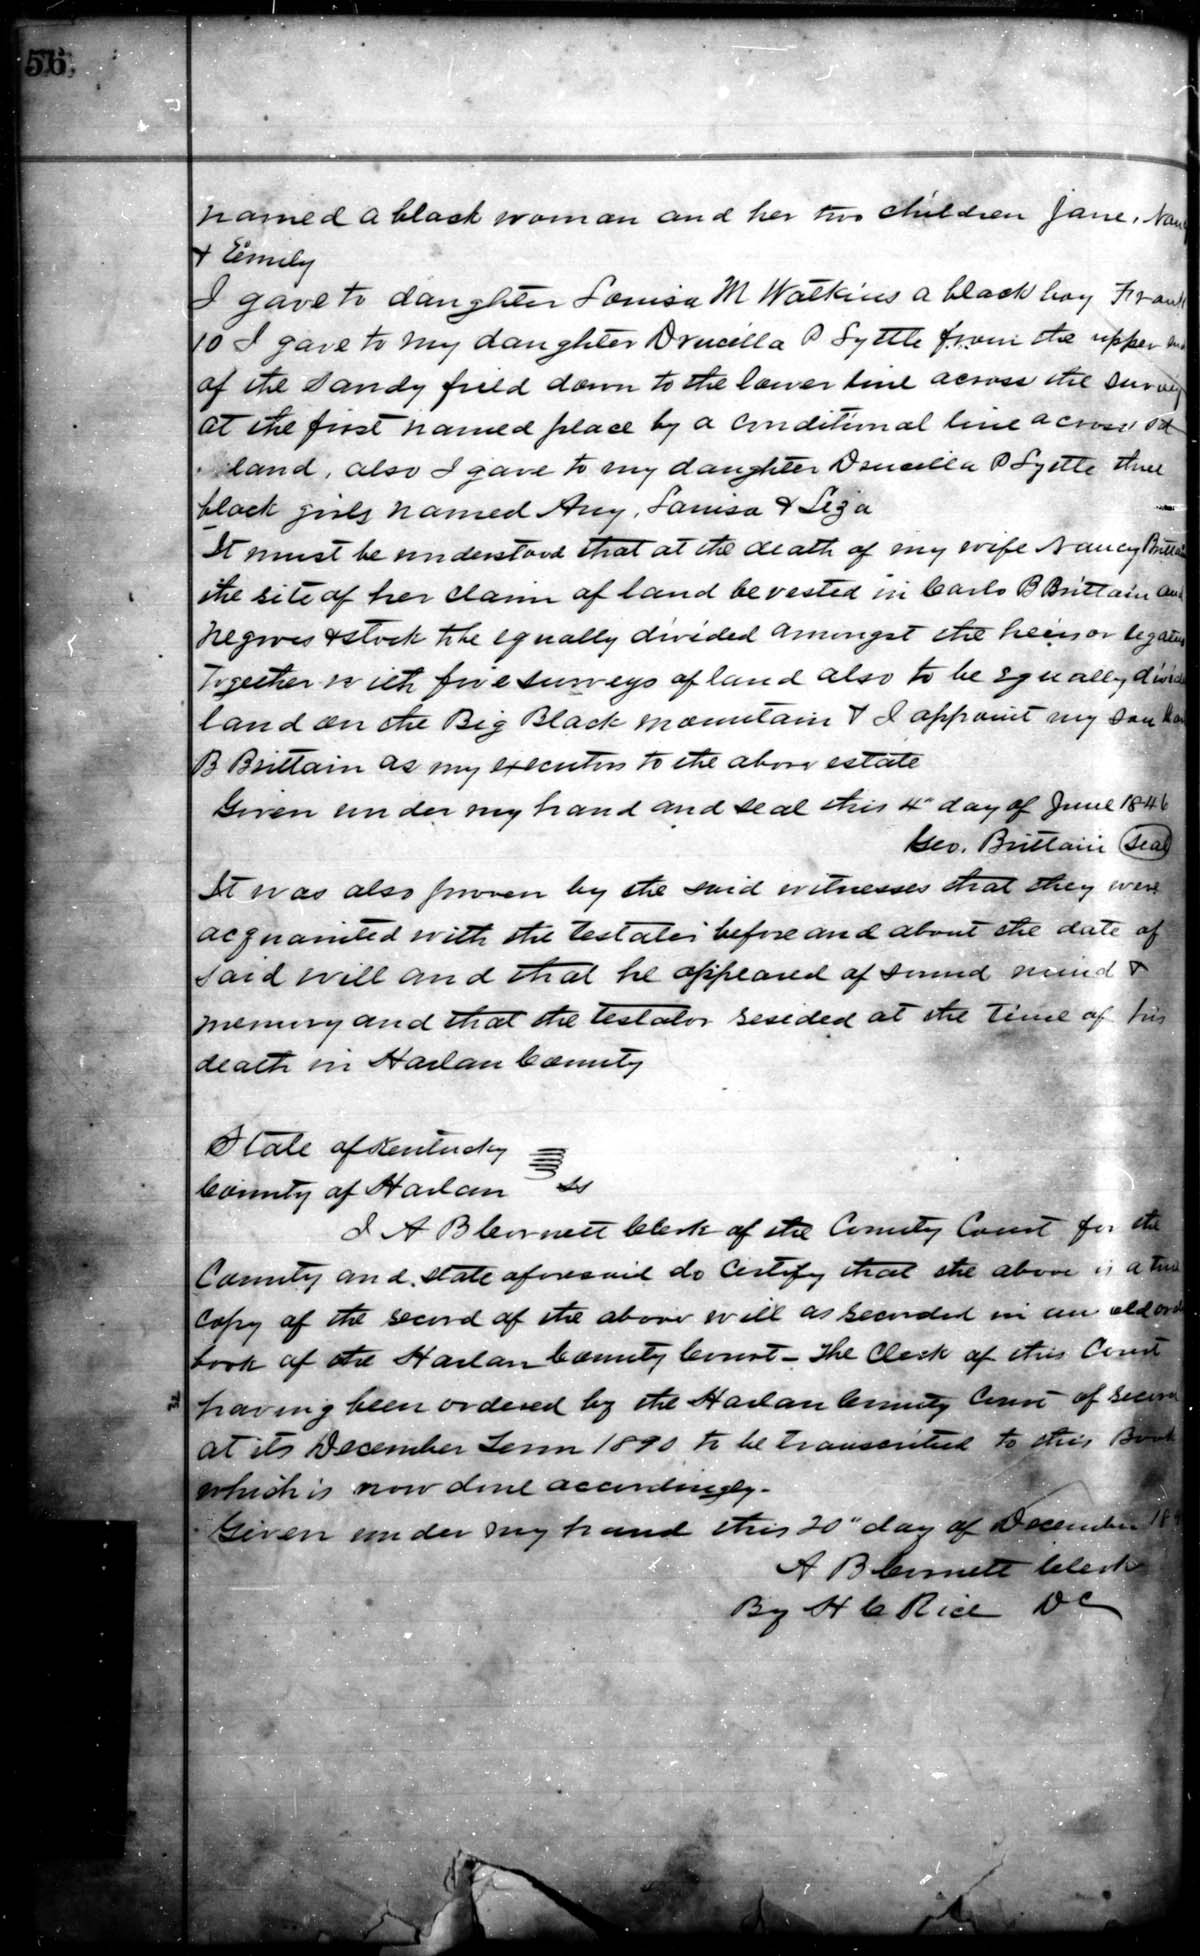 56.
named a black woman and her two children Jane, Nan
& Emily
I gave to daughter Louisa M Watkins a black boy Frank
10 I gave to my daughter Drucilla P Lyttle from the upper
of the Sandy field down to the lower line across the survey
at the first named place by a conditional line across sd
land, also I gave to my daughter Drucilla P Lyttle three
black girls named Any, Louisa & Liza
It must be understood that at the death of my wife Nancy Brittain
the site of her claim of land be vested in Carlo B Brittain and
negroes & stock to be equally divided amongst the heirs or legatees
together with five surveys of land also to be equally divide
land on the Big Black mountain & I appoint my son
B Brittain as my executor to the above estate
Given under my hand and seal this 4" day of June 1846
Geo. Brittain Seal
It was also proven by the said witnesses that they were
acquainted with the testator before and about the date of
said will and that he appeared of sound mind &
memory and that the testator resided at the time of his
death in Harlan County
State of Kentucky
County of Harlan ss
I A B Cornett Clerk of the County Court for the
County and state aforesaid do certify that the above is a true
copy of the record of the above will as recorded in an old
book of the Harlan County Court - The Clerk of this Court
having been ordered by the Harlan County Court of record
at its December Term 1890 to be transcribed to this Book
which is now done accordingly-
Given under my hand this 20" day of December 18
A B Cornett Clerk
By H C Rice DC